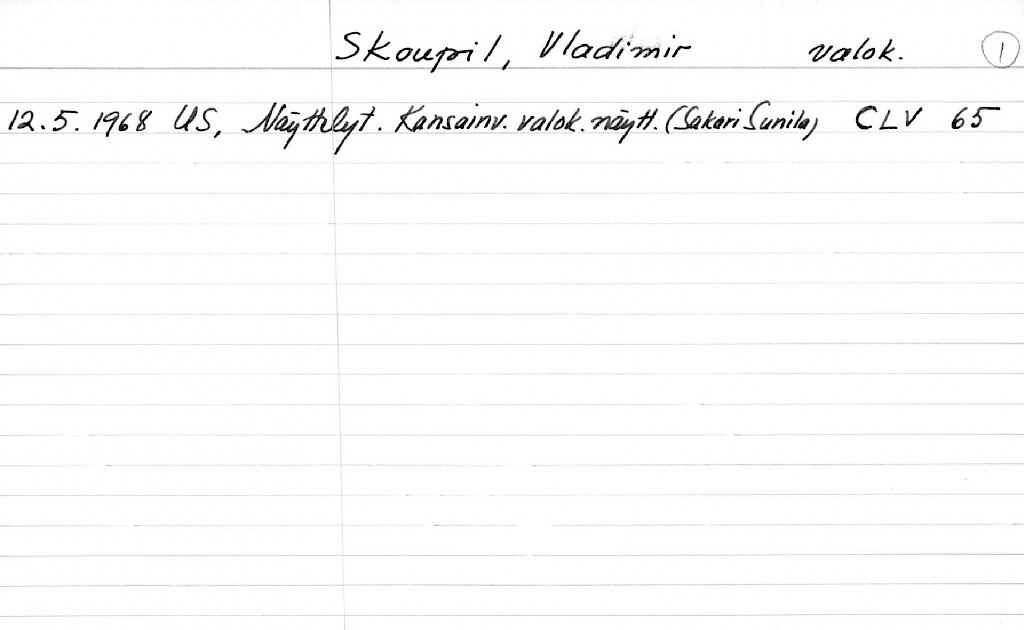 Skoupil, Vladimir valok. 1
12.5.1968 US, Näyttelyt. Kansainv. valok. näytt. (Sakari Sunila) CLV 65